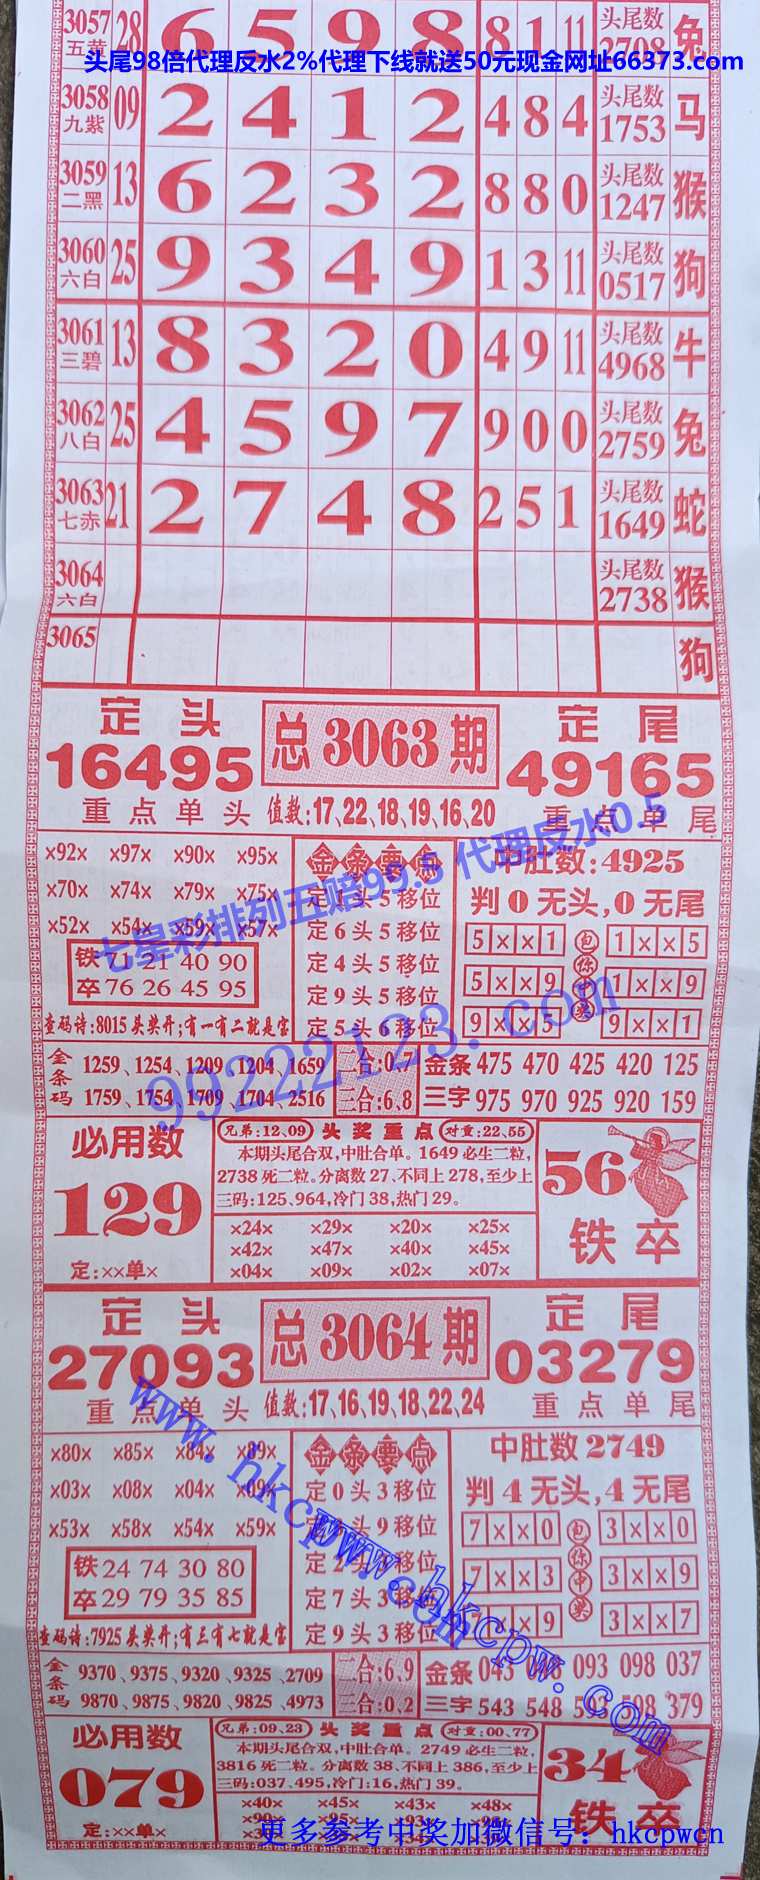 3057 28 6 5 9 8 8 1 11 头尾数 兔
五黄 2708
头尾98倍代理反水2%代理下线就送50元现金网址66373.com
3058 09 2 4 1 2 4 8 4 头尾数 马
九紫 1753
3059 13 6 2 3 2 8 8 0 头尾数 猴
二黑 1247
3060 25 9 3 4 9 1 3 11 头尾数 狗
六白 0517
3061 13 8 3 2 0 4 9 11 头尾数 牛
三碧 4968
3062 25 4 5 9 7 9 0 0 头尾数 兔
八白 2759
3063 21 2 7 4 8 2 5 1 头尾数 蛇
七赤 1649
3064 头尾数 猴
六白 2738
3065 狗
定头 总3063期 定尾
16495 49165
重点单头 值数:17、22、18、19、16、20 重点单尾
×92× ×97× ×90× ×95×
×70× ×74× ×79× ×75×
×52× ×54× ×59× ×57×
铁 71 21 40 90
卒 76 26 45 95
查码诗:8015头奖开;有一有二就是宝
金条要点
定1头5移位
定6头5移位
定4头5移位
定9头5移位
定5头6移位
中肚数:4925
判0无头,0无尾
5××1 包 1××5
5××9 你中 1××9
9××5 奖 9××1
七星彩排列五赔99.5 代理反水0.5
99222123.com
金条码 1259、1254、1209、1204、1659
1759、1754、1709、1704、2516
二合:0,7
三合:6,8
金条 475 470 425 420 125
三字 975 970 925 920 159
必用数
129
定:××单×
兄弟:12、09 头奖重点 对重:22、55
本期头尾合双,中肚合单。1649必生二粒,
2738死二粒。分离数27、不同上278,至少上
三码:125、964,冷门38,热门29。
×24× ×29× ×20× ×25×
×42× ×47× ×40× ×45×
×04× ×09× ×02× ×07×
56
铁卒
定头 总3064期 定尾
27093 03279
重点单头 值数:17、16、19、18、22、24 重点单尾
×80× ×85× ×84× ×89×
×03× ×08× ×04× ×09×
×53× ×58× ×54× ×59×
铁 24 74 30 80
卒 29 79 35 85
查码诗:7925头奖开;有三有七就是宝
金条要点
定0头3移位
头9移位
定2头 移位
定7头3移位
定9头3移位
中肚数2749
判4无头,4无尾
7××0 包 3××0
7××3 你中 3××9
××9 奖 3××7
www.hkcpw.com
www.hkcpw.com
金条码 9370、9375、9320、9325、2709
9870、9875、9820、9825、4973
二合:6,9
三合:0,2
金条 043 093 098 037
三字 543 548 593 598 379
必用数
079
定:××单×
兄弟:09、23 头奖重点 对重:00、77
本期头尾合双,中肚合单。2749必生二粒,
3816死二粒。分离数38、不同上386,至少上
三码:037、495,冷门:16,热门39。
×40× ×45× ×43× ×48×
34
铁卒
更多参考中奖加微信号：hkcpwcn